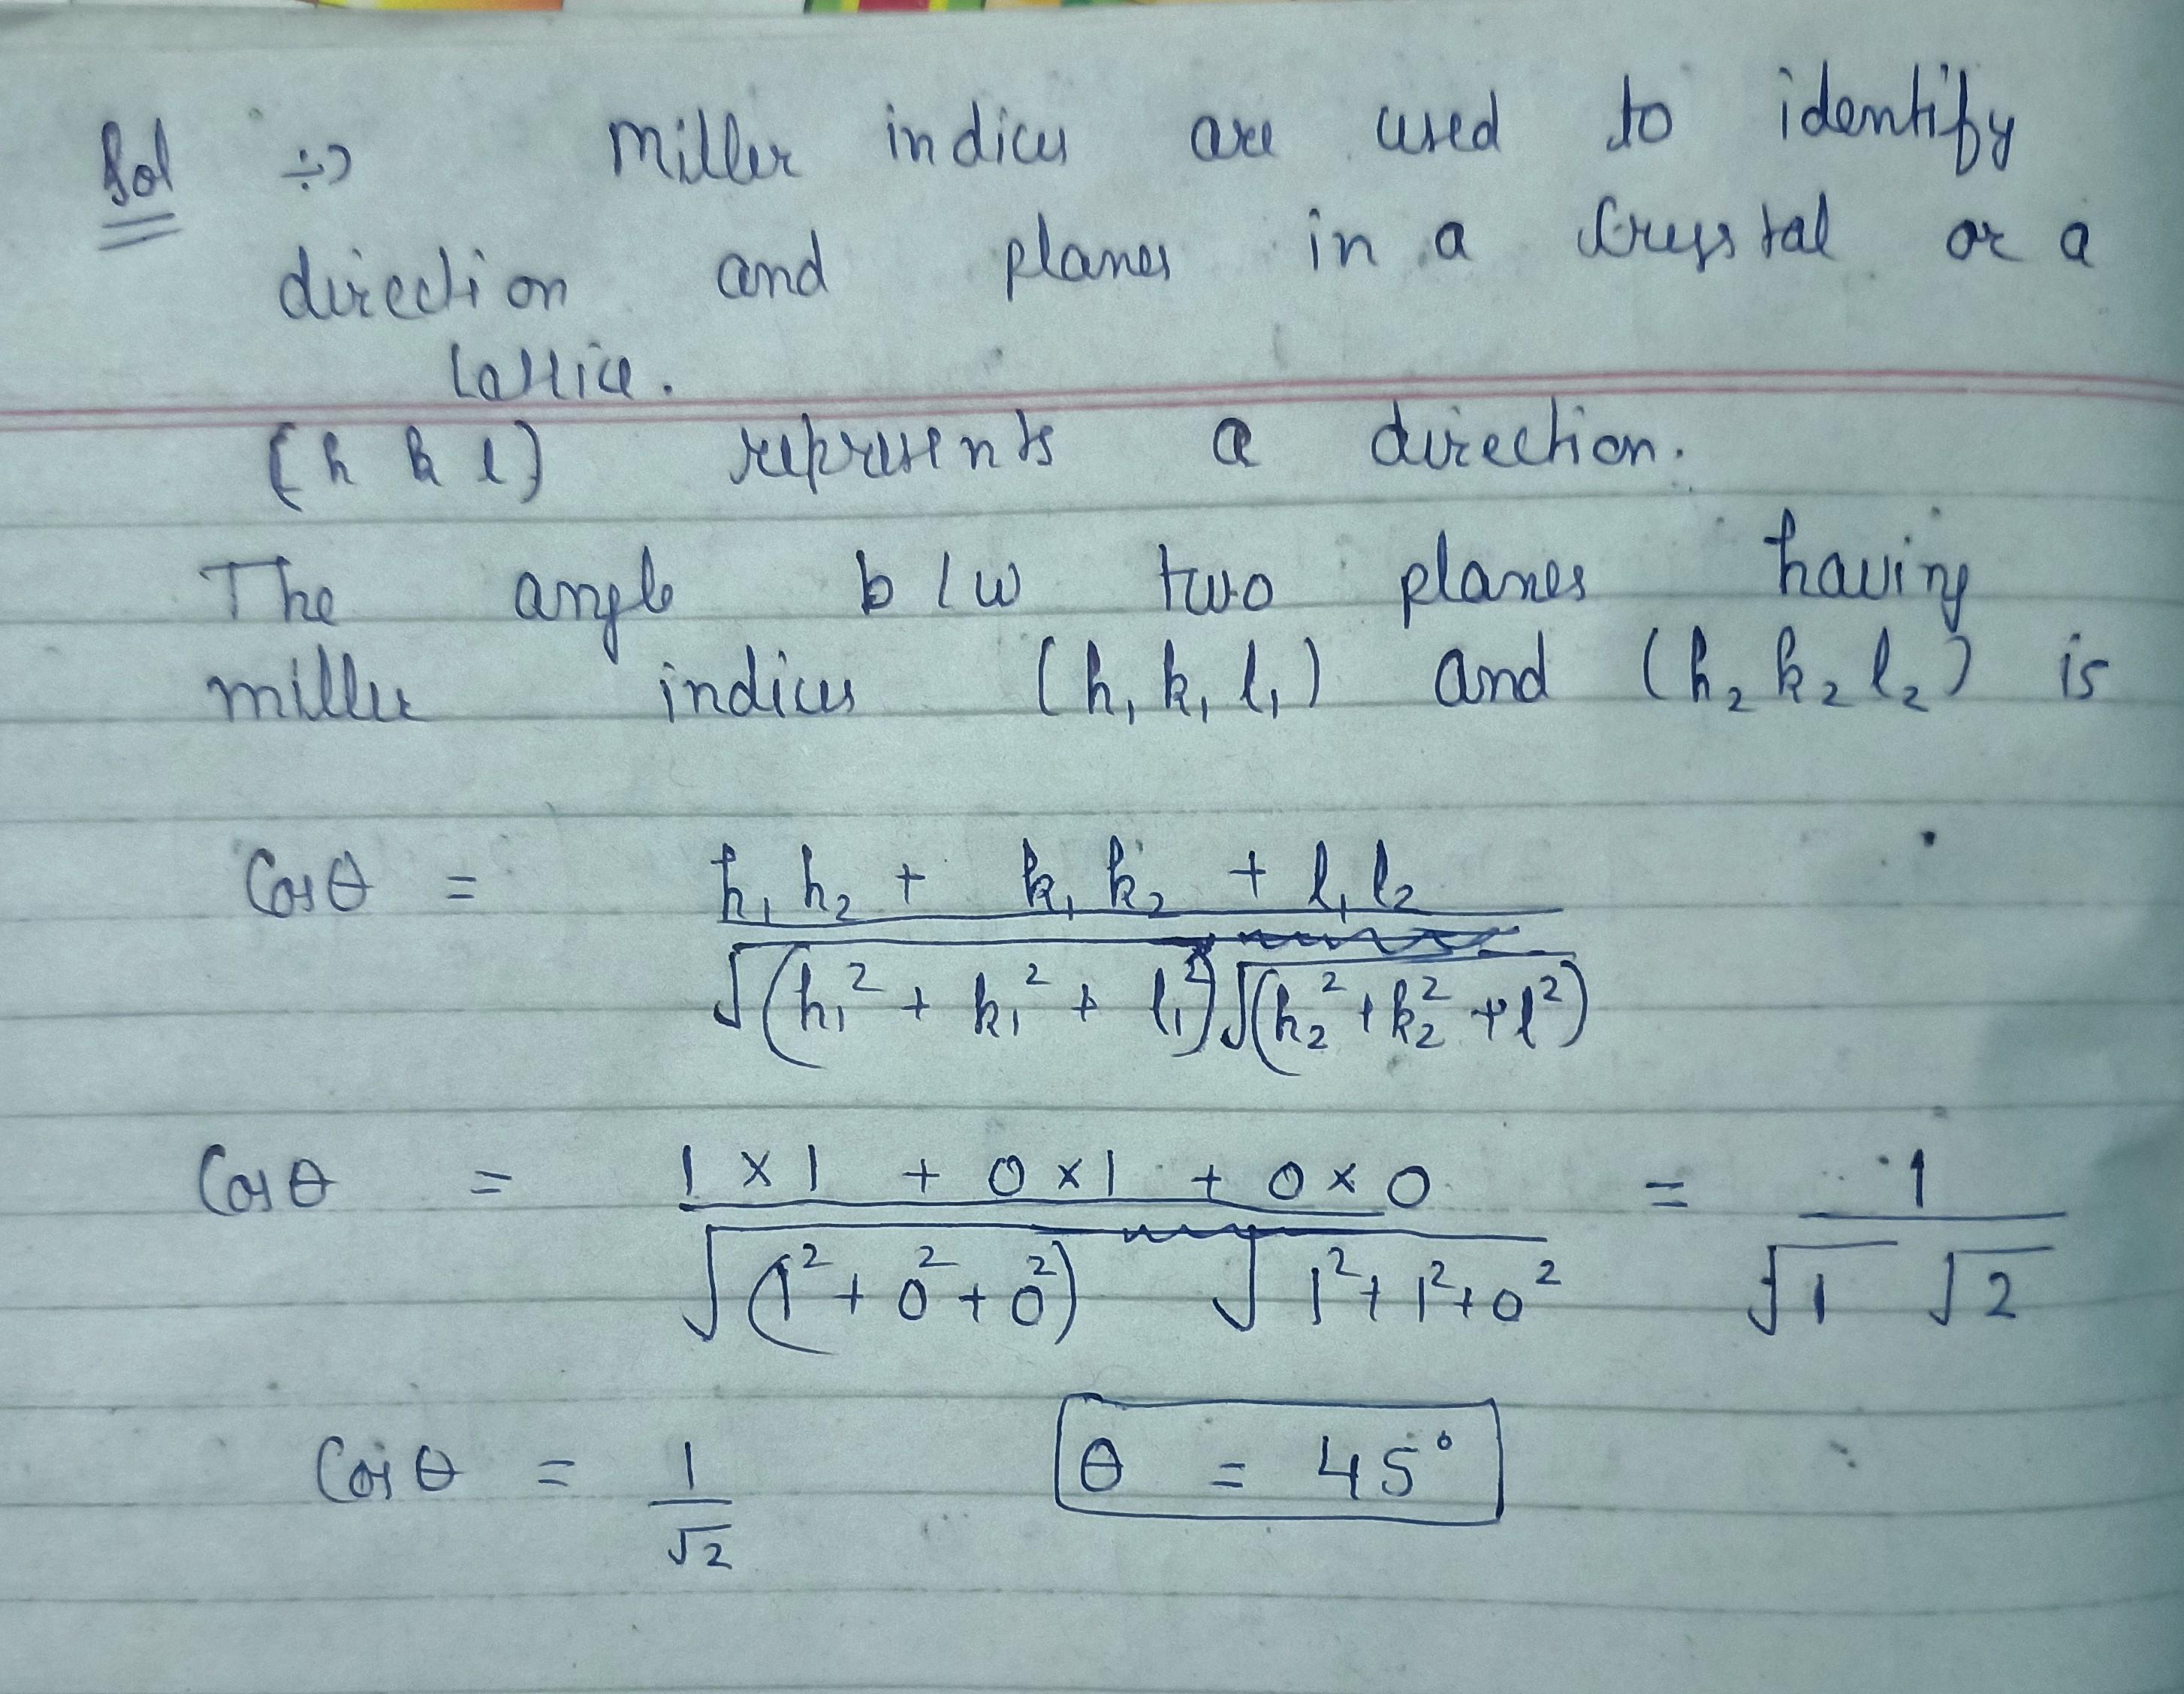 Sol ÷→ Miller indices are used to identify
direction and planes in a crystal or a
lattice.
[h k l] represents a direction.
The angle b/w two planes having
miller indices (h₁ k₁ l₁) and (h₂ k₂ l₂) is
Cosθ = h₁h₂ + k₁k₂ + l₁l₂ / √(h₁² + k₁² + l₁²) √(h₂² + k₂² + l²)
Cosθ = 1×1 + 0×1 + 0×0 / √(1² + 0² + 0²) √1² + 1² + 0² = 1 / √1 √2
Cosθ = 1/√2 θ = 45°